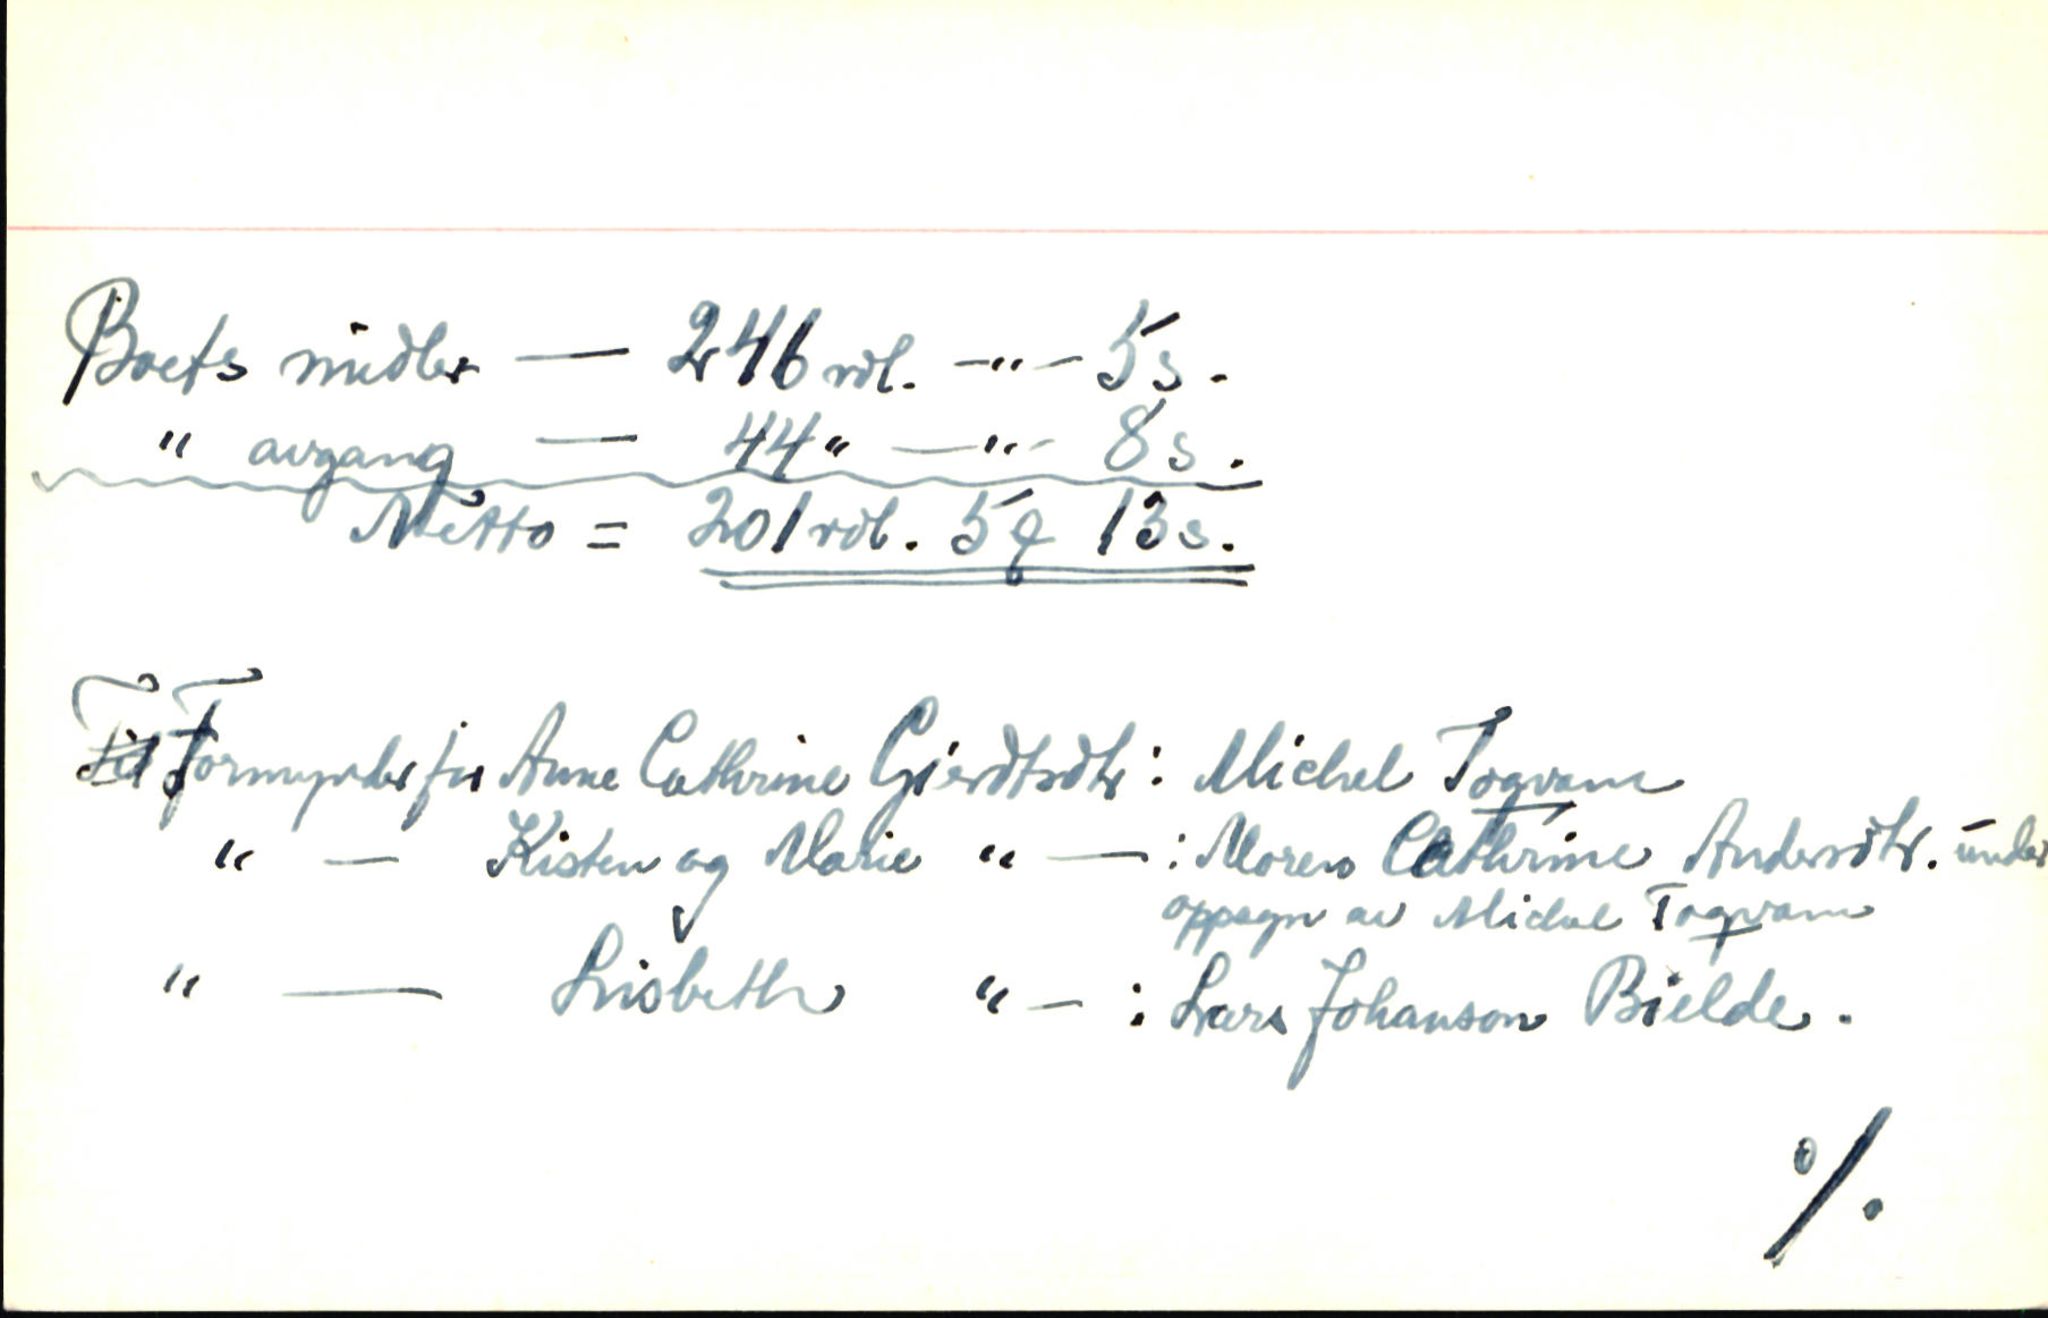 Boets midler — 246 rdl. -"- 5 s.
" avgang — 44 " -"- 8 s.
Netto = 201 rdl. 5 q 13 s.
Formynder for Anne Cathrine Gierdtsdtr: Michel Togvam
" — Kisten og Marie " — : Moren Cathrine Andersdtr. under
oppsyn av Michel Togvam
" — Lisbeth " — : Lars Johanson Bielde.
%